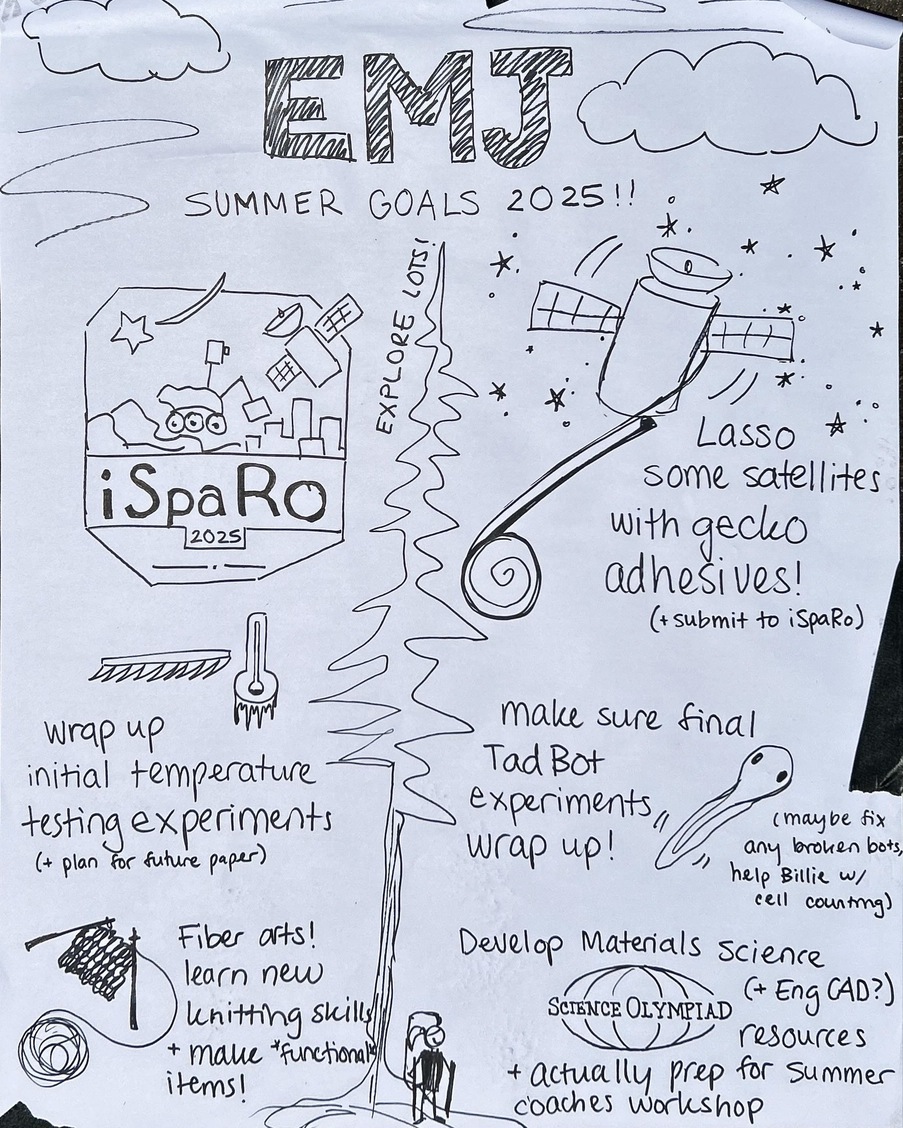 EMJ
SUMMER GOALS 2025!!
EXPLORE LOTS!
iSpaRo
2025
Lasso
some satellites
with gecko
adhesives!
(+ submit to iSpaRo)
wrap up
initial temperature
testing experiments
(+ plan for future paper)
make sure final
TadBot
experiments
wrap up!
(maybe fix
any broken bots,
help Billie w/
cell counting)
Fiber arts!
learn new
knitting skills
+ make *functional*
items!
Develop Materials Science
(+ Eng CAD?)
SCIENCE OLYMPIAD
resources
+ actually prep for summer
coaches workshop